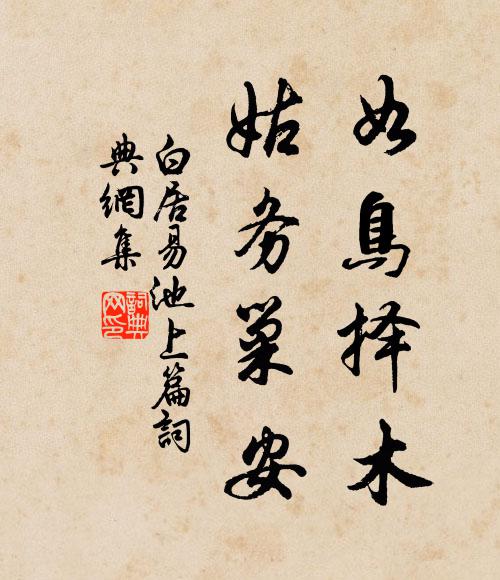 如鳥择木
姑务巢安
白居易池上篇詞
典網集
詞典网印